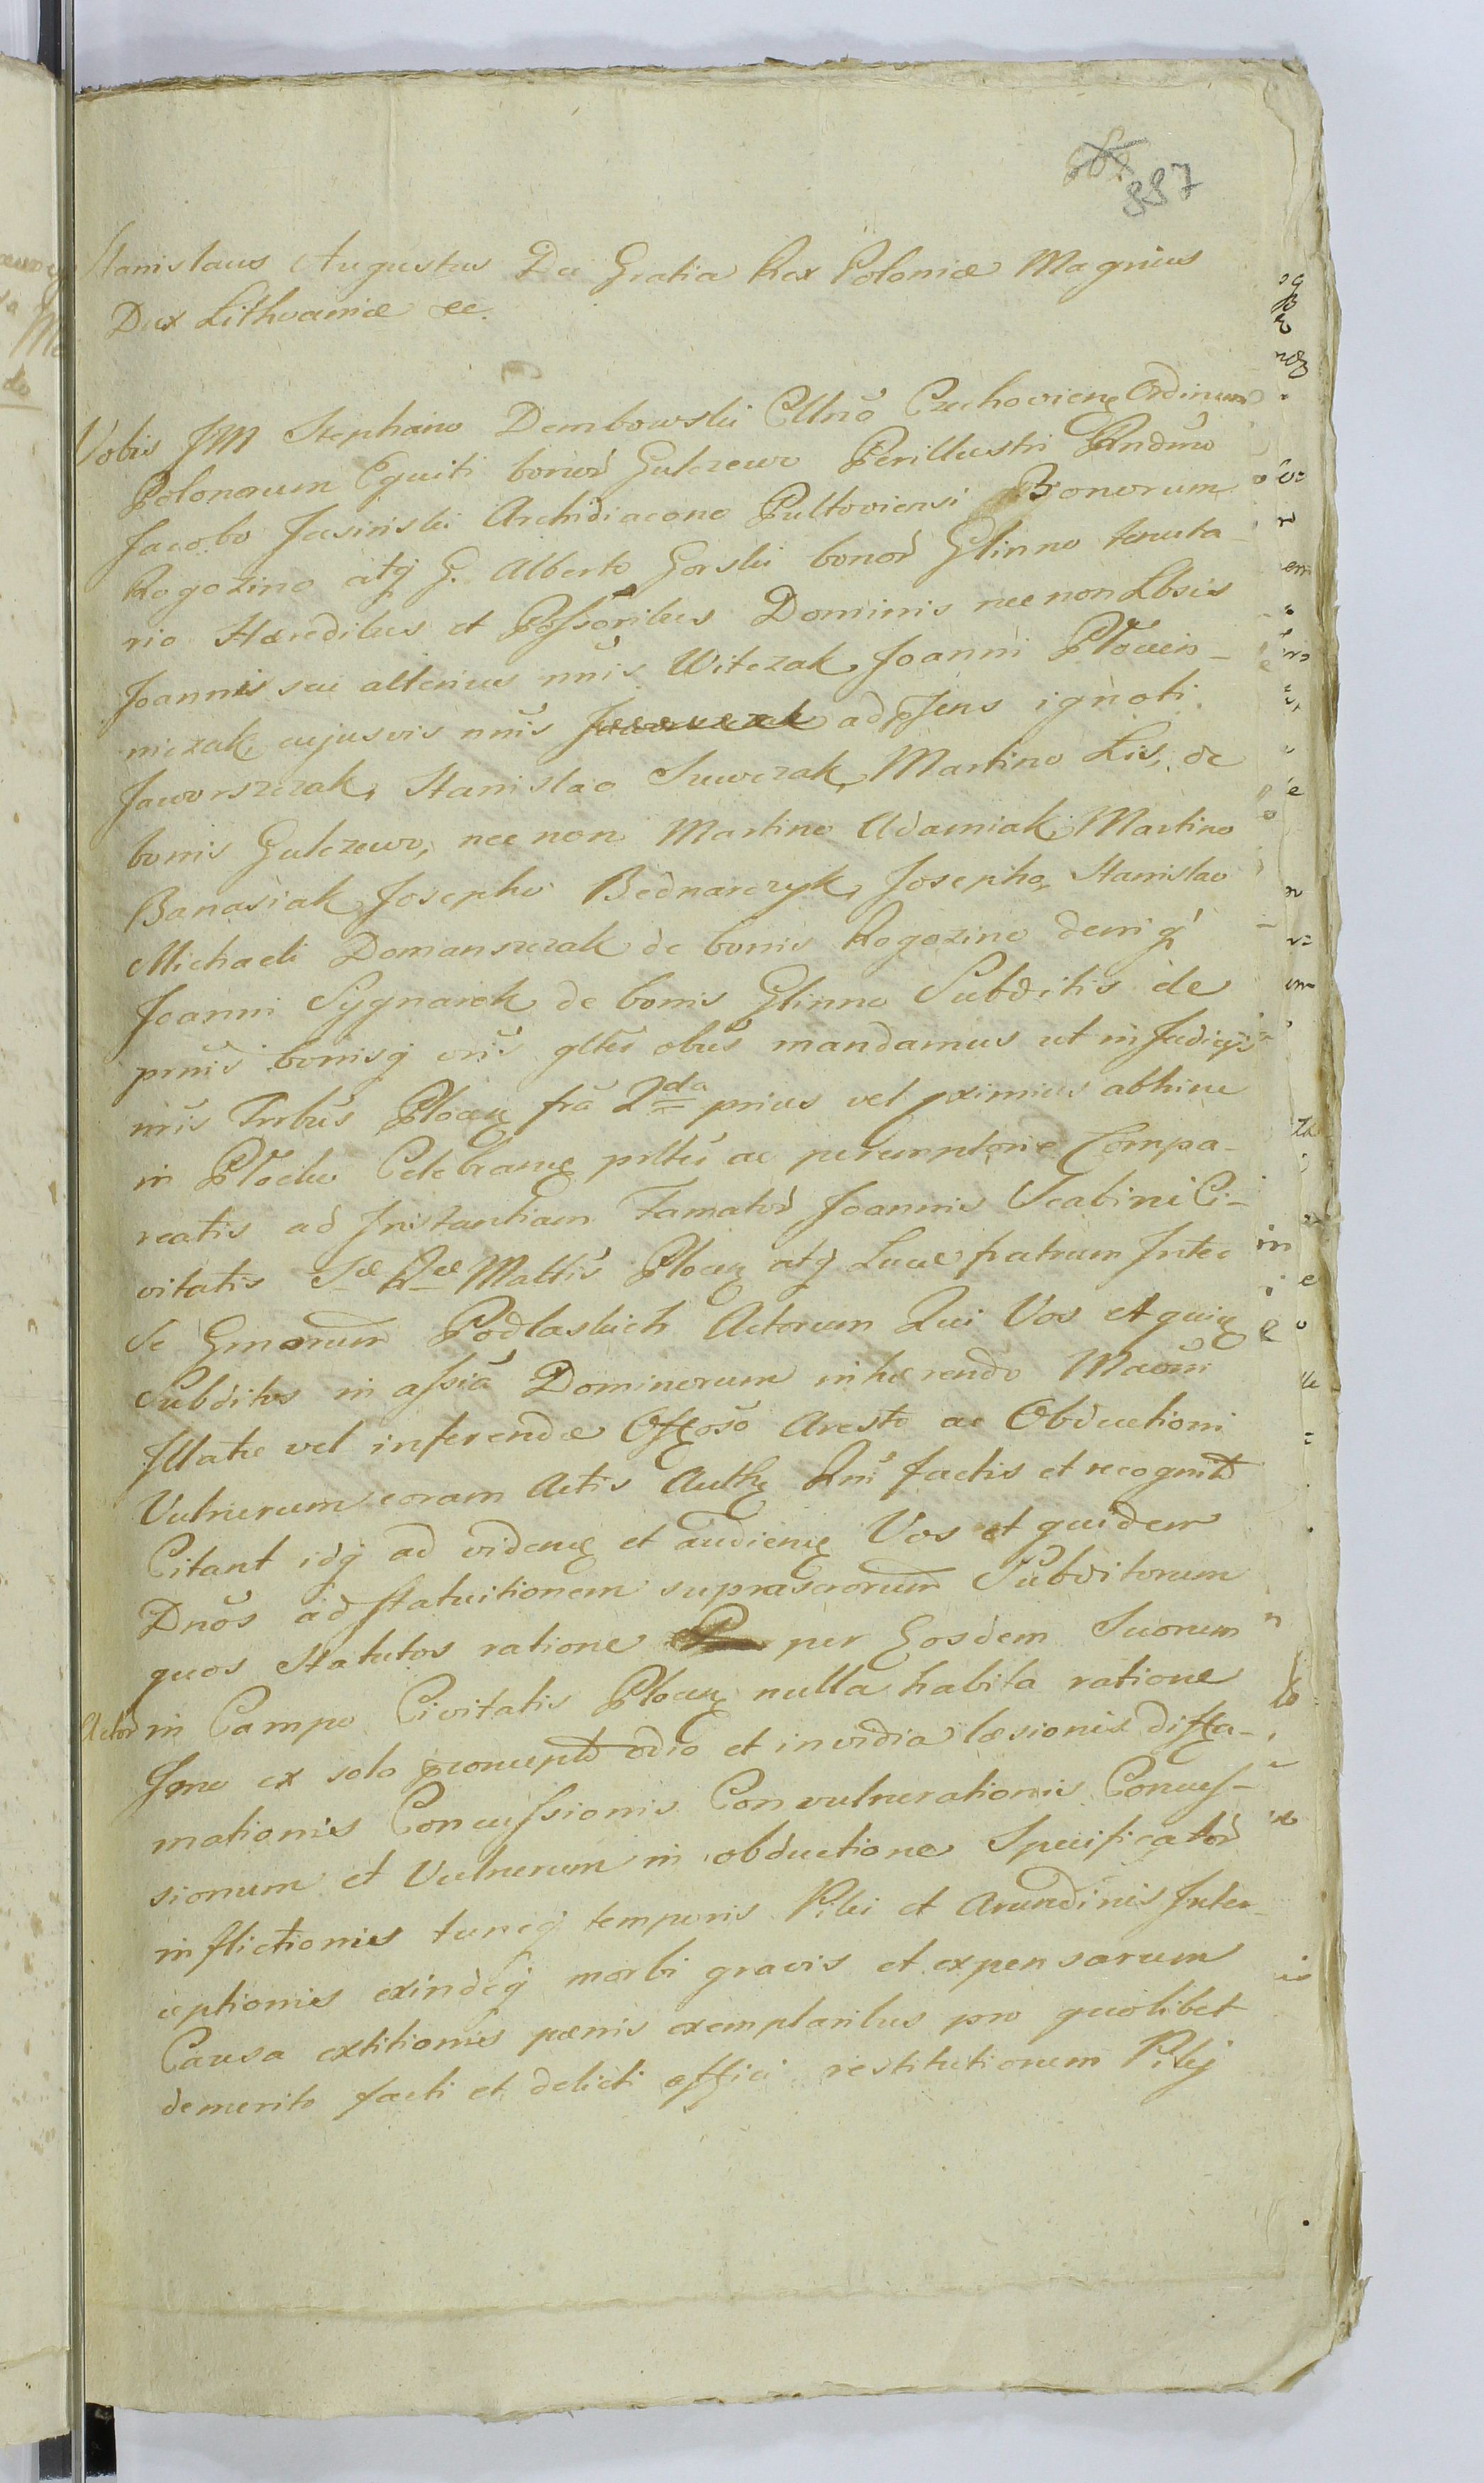 887
Stanislaus Augustus Dei Gratia Rex Poloniæ Magnus
Dux Lithvaniæ &c.
Vobis JM Stephano Dembowski Cllnō Czechoviens Ordinum
Polonorum Equiti bonor Gulczewo Perillustri Rndmo
Jacobo Jasinski Archidiacono Pultoviensi Bonorum
Rogozino atq G. Alberto Gorski bonor Glinno tenuta
rio Hæredibus et Possoribus Dominis nec non Lbsis
Joannis seu alterius nnis Witczak, Joanni Płocien-
niczak, cujusvis nnis ad pssens ignoti
Jaworszczak, Stanislao Suwczak, Martino Lis, de
bonis Gulczewo, nec non Martino Adamiak, Martino
Banasiak, Josepho Bednarczyk, Josepho, Stanislao
Michaeli Domanszczak de bonis Rogozino deniq
Joanni Sygnarek de bonis Glinno Subditis de
prnis bonisq vris gltr obus mandamus ut in Judicijs
nris Trrbus Plocen fra 2da prius vel pximius abhinc
in Płocko Celebran prltr ac peremptorie Compa-
reatis ad Instantiam Famator Joannis Scabini Ci-
vitatis Sæ Ræ Mattis Plocen atq Lucæ fratrum Inter
Se Gmanorum Podlaskich Actorum Qui Vos et quid
Subditos in assia Dominorum inhærendo Maōni
Illatæ vel inferendæ Offoso Aresto ac Obductioni
Vulnerum coram Actis Auth Rni factis et recognit
Citant idq ad viden et audien Vos et quidem
Dnos ad statuitionem suprascrorum Subditorum
quos Statutos ratione per Eosdem Suorum
Actor in Campo Civitatis Plocen nulla habita ratione
Imo ex solo pconcepto odio et invidia læsionis diffa-
mationis Concussionis Convulnerationis Concus-
sionum et Vulnerum in obductione Specificator
inflictionis tuncq temporis Pilei et Arundinis Inter-
ceptionis exindeq morbi gravis et expensarum
Causa extitionis pænis exemplaribus pro quolibet
demerito facti et delicti affici restitutionem Pilej